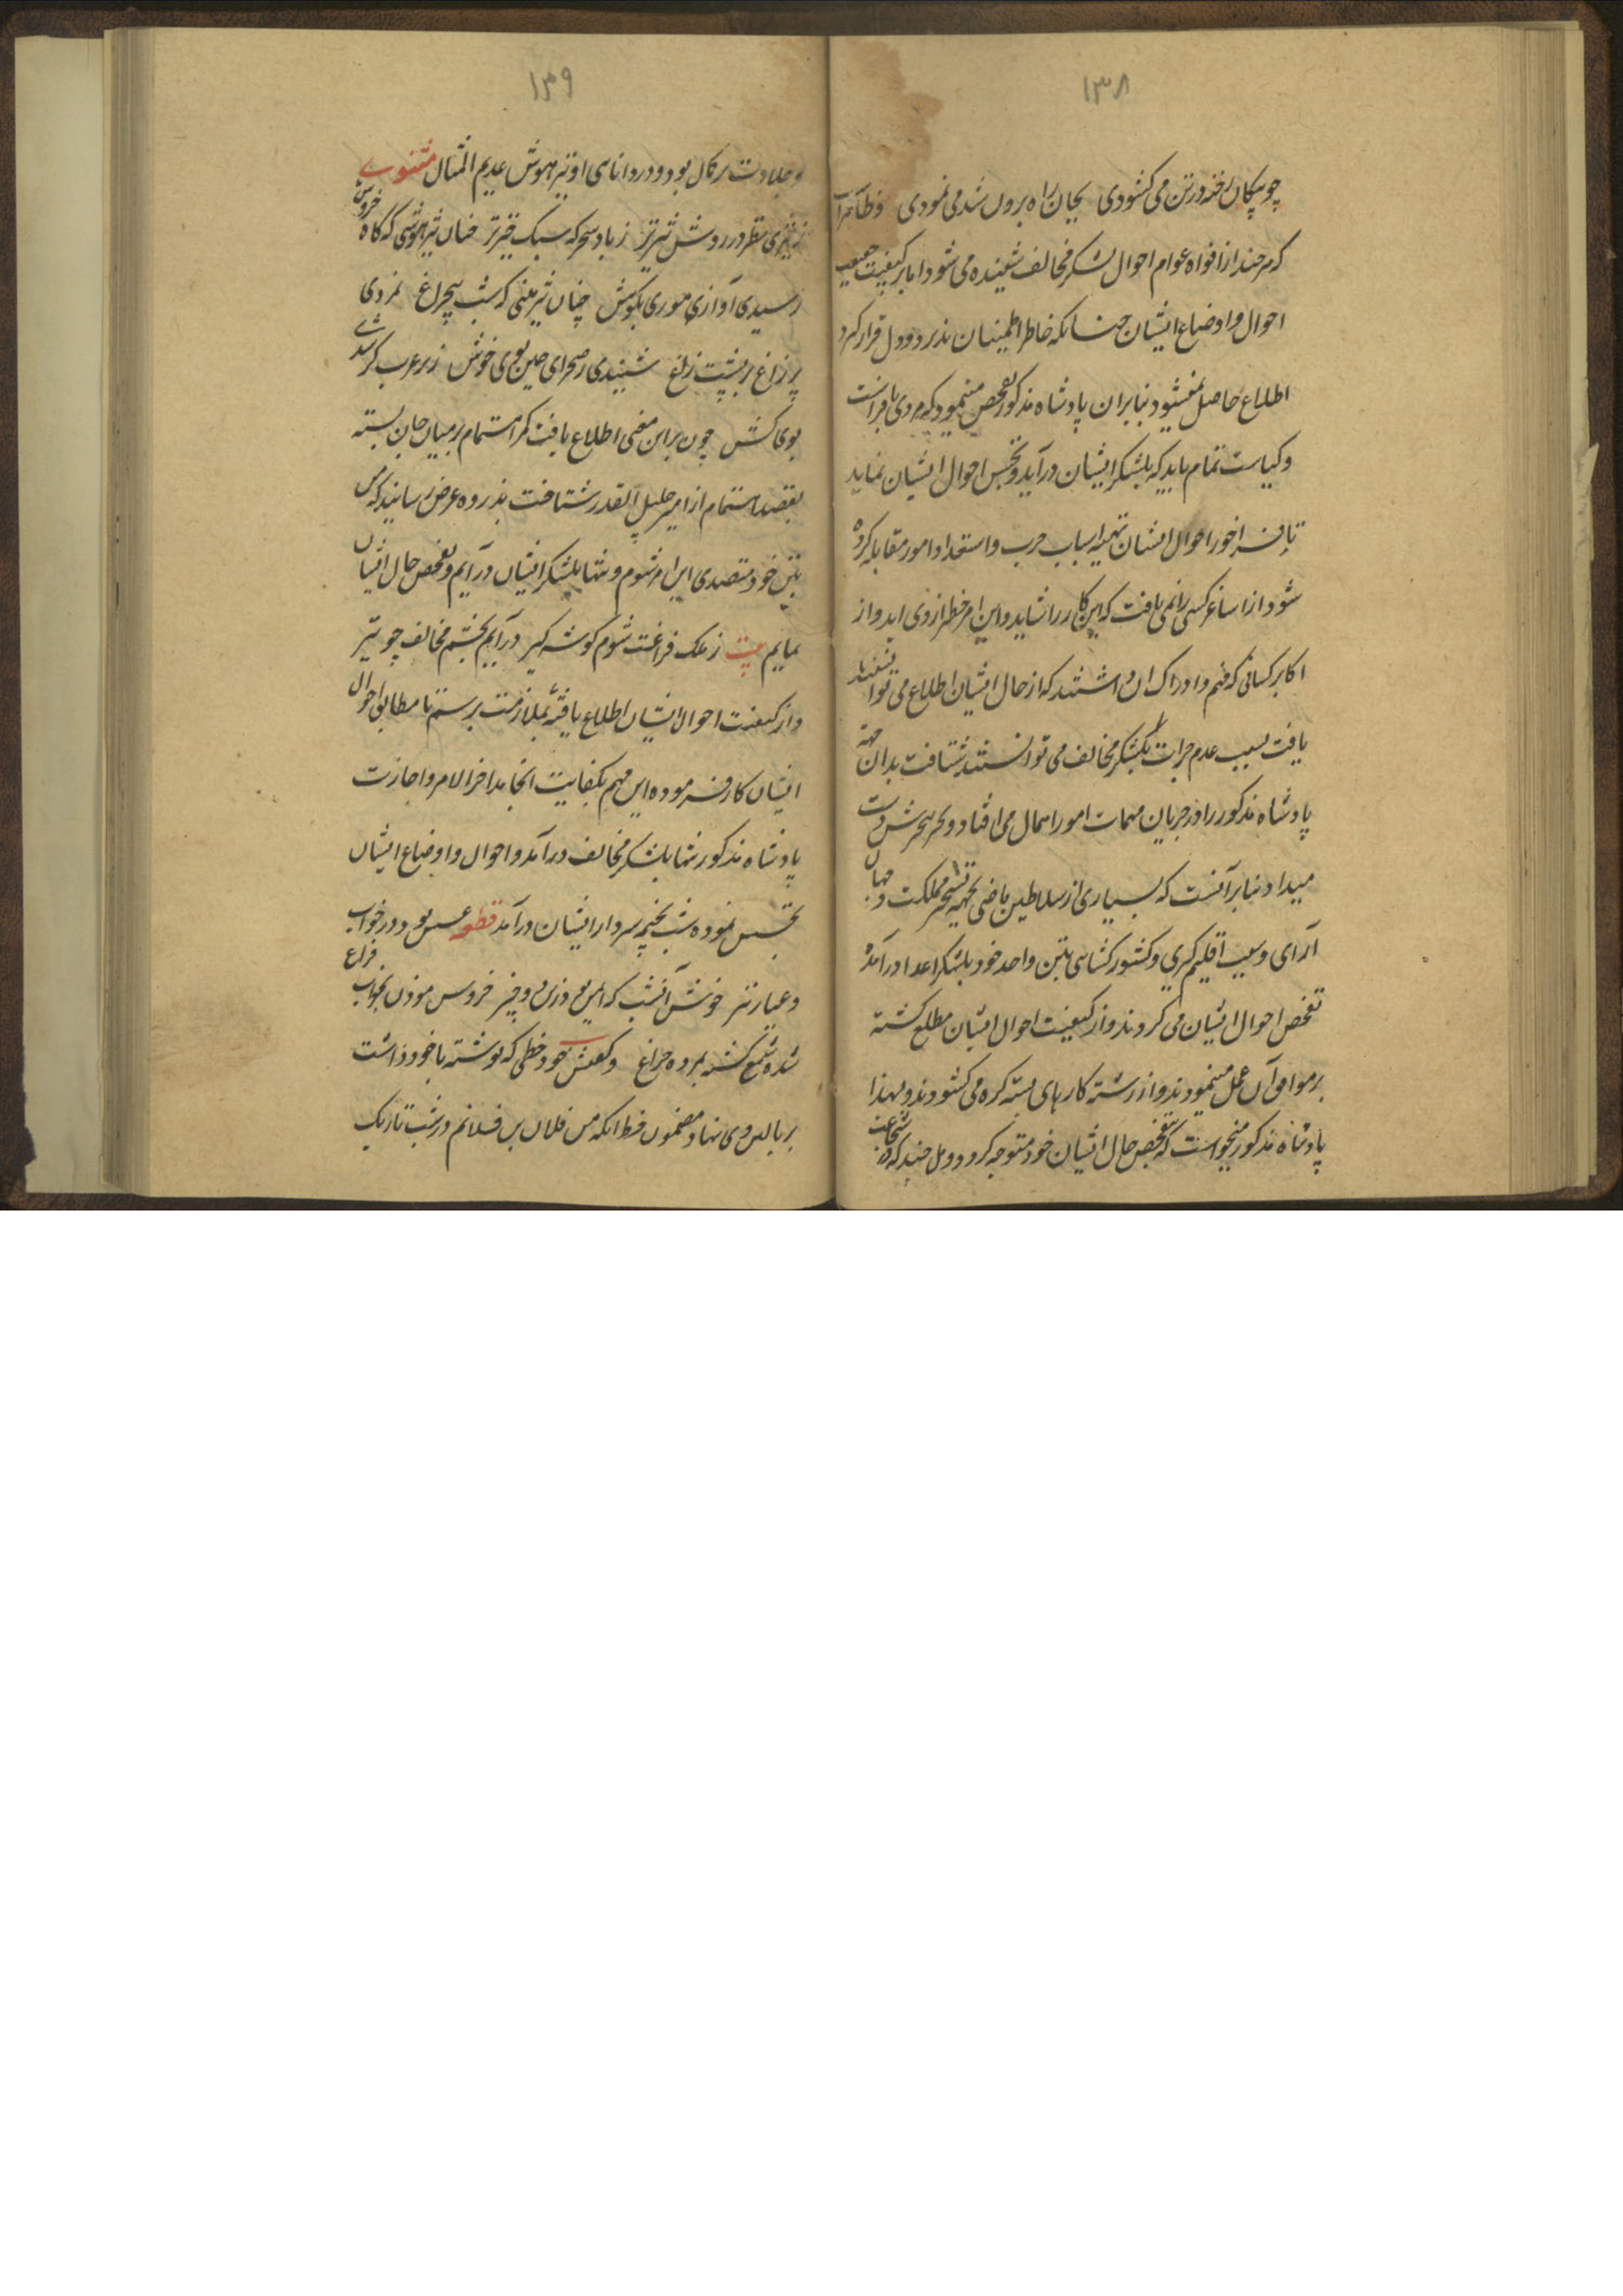 ۱۳۸
چو پیکان رخنه در تن می کشودی بجان راه برون شد می نمودی و ظاهرا
که هر چند از افواه عوام احوال لشکر مخالف شنیده می شود اما بر کیفیت جمعیت
احوال و اوضاع ایشان چنانکه خاطر اطمینان پذیرد و دل قرار گیرد
اطلاع حاصل نمیشود بنابران پادشاه مذکور تفحص مینمود که مردی با فراست
و کیاست تمام باید که بلشکر ایشان درآید و تجسس احوال ایشان نماید
تا فراخور احوال ایشان تهیه اسباب حرب و استعداد امور مقابله کرده
شود از اساغر کسی را نمی یافت که این کار را شاید و این امر خطر از وی آید و از
اکابر کسانی که فهم و ادراک آن داشتند که از حال ایشان اطلاع می توانستند
یافت بسبب عدم جرات بلشکر مخالف می توانستند شتافت بدان جهة
پادشاه مذکور را در جریان مهمات امور اهمال می افتاد و
میداد و بنابر آنست که بسیاری از سلاطین ماضی بجهة تسخیر مملکت و جهان
آرای و سبب اقلیم گیری و کشور کشایی بتن واحد خود بلشکر اعدا درآمده
تفحص احوال ایشان می کردند و از کیفیت احوال ایشان مطلع کشته
بر موافق آن عمل مینمودند و از رشته کارهای بسته کره می کشودند و لهذا
پادشاه مذکور میخواست که بتفحص حال ایشان خود متوجه کردد و مل خبند که در شجاعت
۱۳۹
و جلادت بر کمال بود و در دانایی او تیز هوش عدیم المثال مثنوی
ز تیزی نظر در روش تیزتر ز باد سحر که سبک خیزتر چنان تیز هوشی که گاه خروش
رسیدی آواز پی موری بکوش چنان تیز بینی که شب بیچراغ نمردی
پر زاغ بر پشت زاغ شنیدی ز صحرای چین بوی خوش ز بر عرب گر شدی
بوی کش چون بر این معنی اطلاع یافت کمر استتمام بر میان جان بسته
بقصد استتمام از امیر جلیل القدر شتافت بذروه عرض رسانید که من
بتن خود متصدی این امر شوم و تنها بلشکر ایشان درآیم و تفحص حال ایشان
نمایم بیت ز ملک فراغت شوم کوشه گیر درآیم بچشم مخالف چو تیر
و از کیفیت احوال ایشان اطلاع یافته بملازمت برستم تا مطابق احوال
ایشان کار فرموده این مهم بکفایت انجامد اخر الامر و اجازت
پادشاه مذکور تنها بلشکر مخالف درآمد و احوال و اوضاع ایشان
تجسس نموده شب بخیمه سردار ایشان درآمد قطعه عسس بود در خواب
و عیار نیز خوش آنشب که ایمن بود دزد و خیز خروس موذن بخواب فراغ
شده شمع کشته بمرده چراغ و کفش خود خطی که نوشته با خود داشت
بر بالین وی نهاد مضمون خط انکه من فلان بن فلانم در شب تاریک